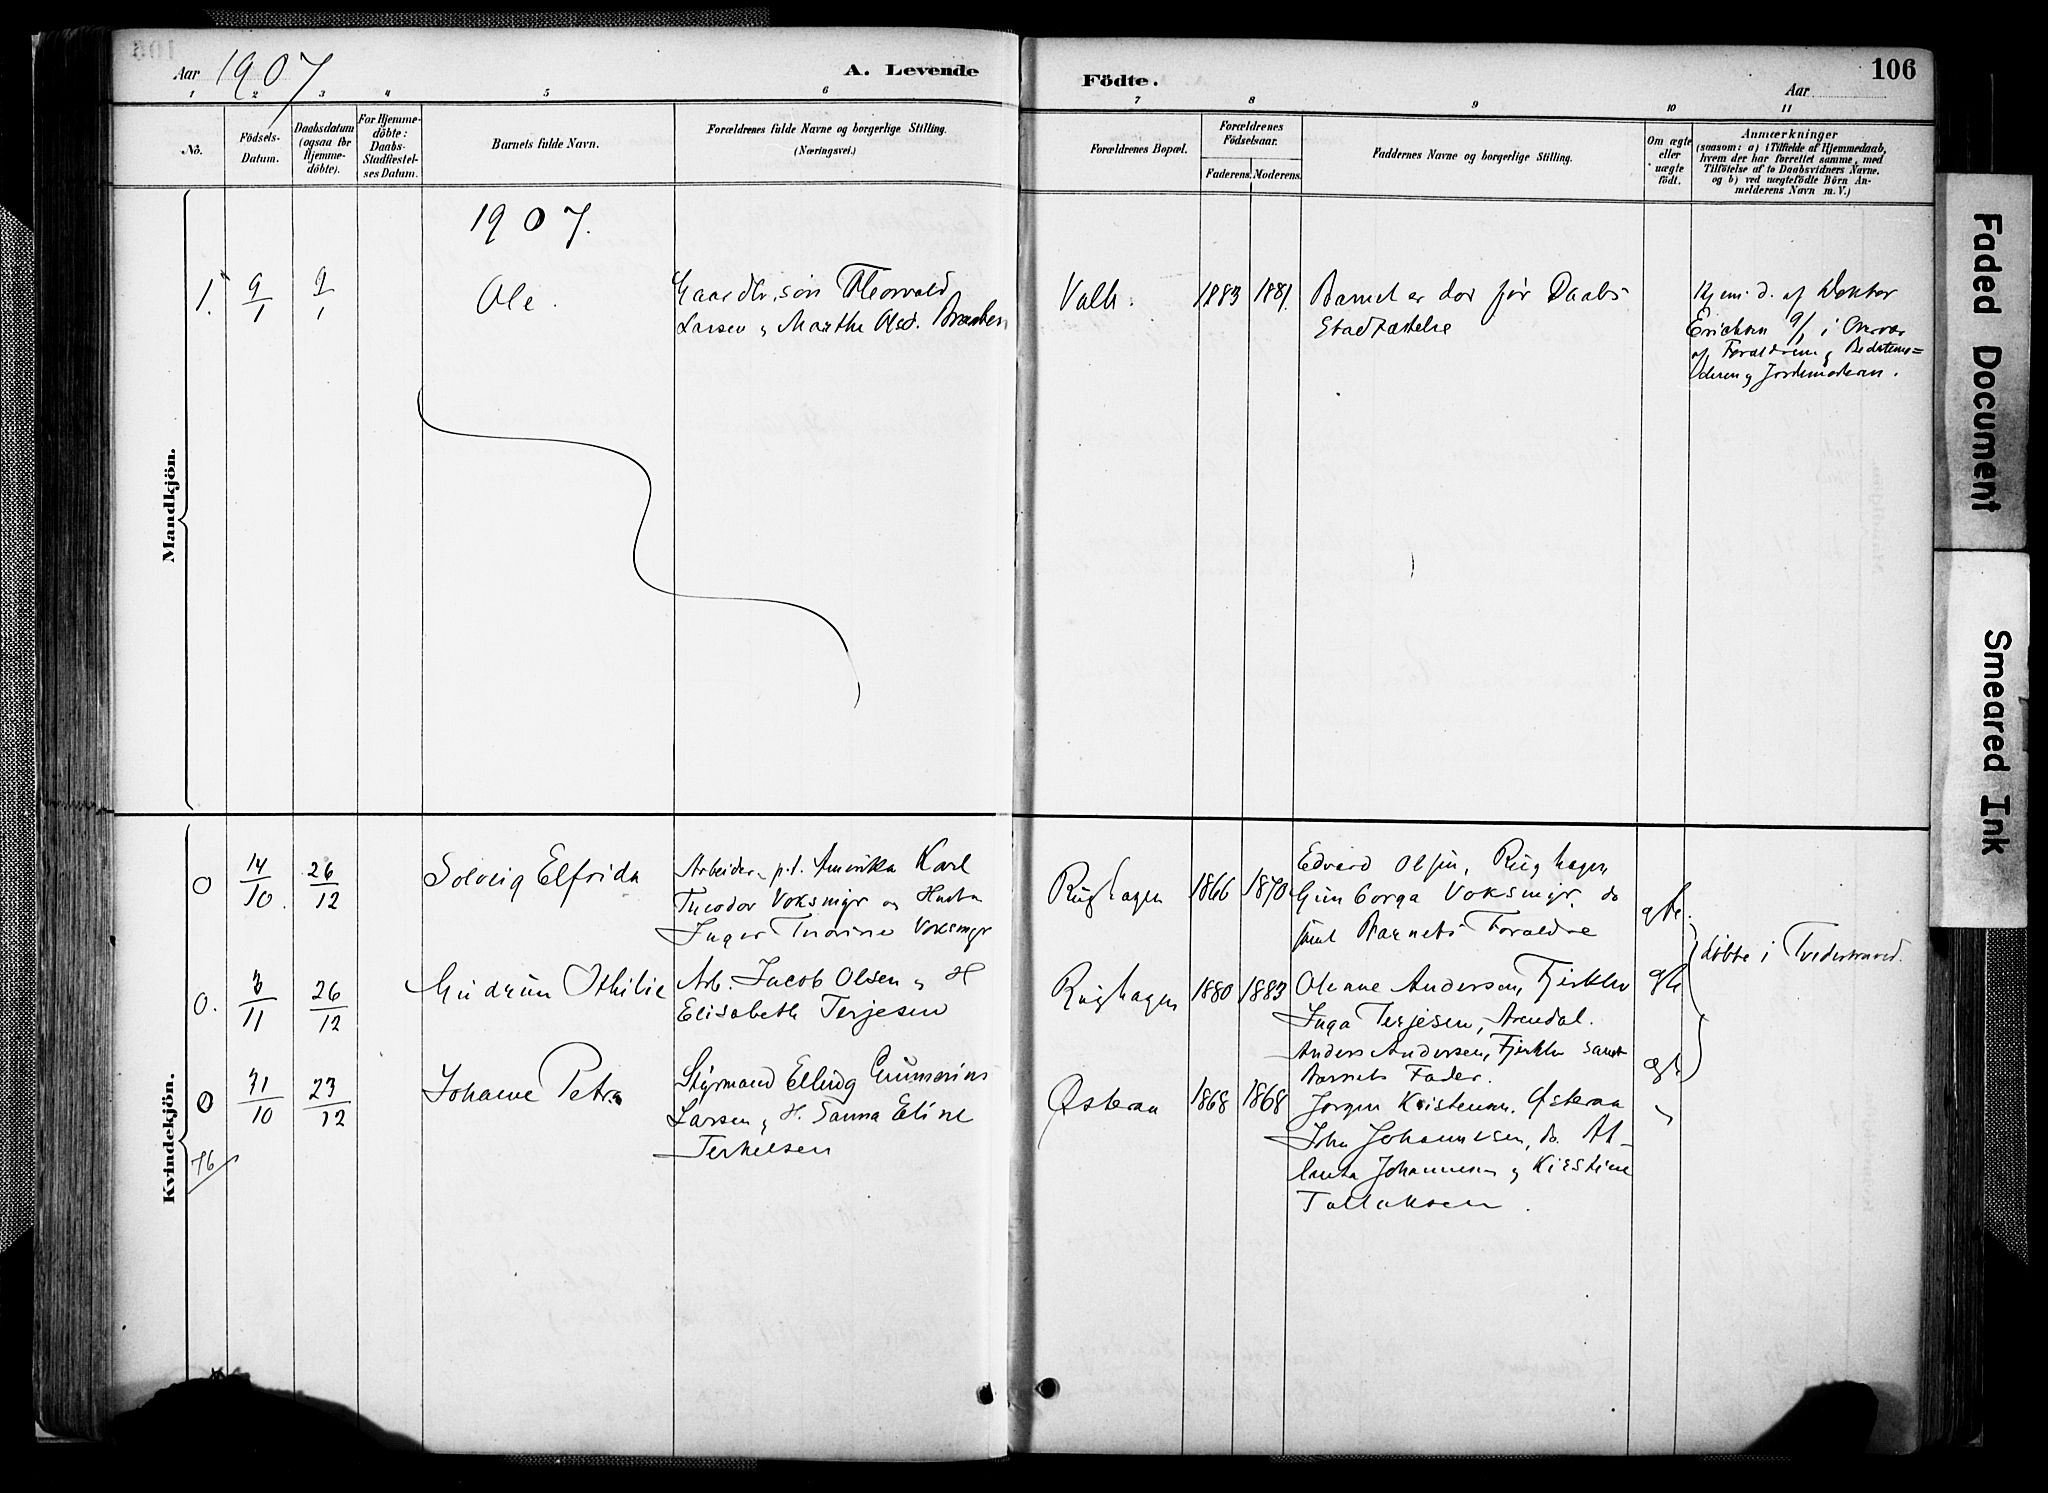 Aar 1907
A. Levende
Födte.
Aar
106
1 2 3 4 5 6 7 8 9 10 11
No.
Födsels-
Datum.
Daabsdatum
(ogsaa for
Hjemme-
döbte).
For Hjemme-
döbte:
Daabs-
Stadfæstel-
ses Datum.
Barnets fulde Navn.
Forældrenes fulde Navne og borgerlige Stilling.
(Næringsvei.)
Forældrenes Bopæl.
Forældrenes
Födselsaar.
Faderens. Moderens.
Faddernes Navne og borgerlige Stilling.
Om ægte
eller
uægte
født.
Anmærkninger
(saasom: a) i Tilfælde af Hjemmedaab,
hvem der har forrettet samme, med
Tilföielse af to Daabsvidners Navne.
og b) ved uægtefödte Börn An-
melderens Navn m. V.)
Mandkjön.
1907.
1. 9/1 9/1
Ole.
Gaardbr. søn Thorvald
Larsen og Marthe Olsd.
Valle.
1883 1881.
Barnet er død før Daabs
Stadfæstelse
Hjem. d. af Doktor
Erichsen 9/1 i Overvær
af Forældrene og Bedstemo=
deren og Jordemoderen.
Kvindekjön.
0 14/10. 26/12
Solveig Elfrida
Arbeider p.t. Amerika Karl
Theodor Voksmyr og Hustru
Inger Thorine Voksmyr
Rughagen
1866 1870
Edvard Olsen, Rughagen
Gunborga Voksmyr do
samt Barnets Forældre
gte.
døbte i Tvedestrand.
0. 3/11 26/12
Gudrun Othilie
Arb. Jacob Olsen og H
Elisabeth Terjesen
Rughagen
1880 1883
Oleane Andersen, Fjerkler
Inga Terjesen, Arendal.
Anders Andersen, Fjerkler samt
Barnets Fader.
gte
0 31/10 23/12
Johanne Petra
Styrmand Elling Gunnerius
Larsen og H. Sanna Eline
Terkelsen
Østeraa
1868 1868
Jørgen Kristensen. Østeraa
John Johannesen, do. Al-
Johannesen og Kirstine
Tallaksen.
ægte
76
Faded Document
Smeared Ink